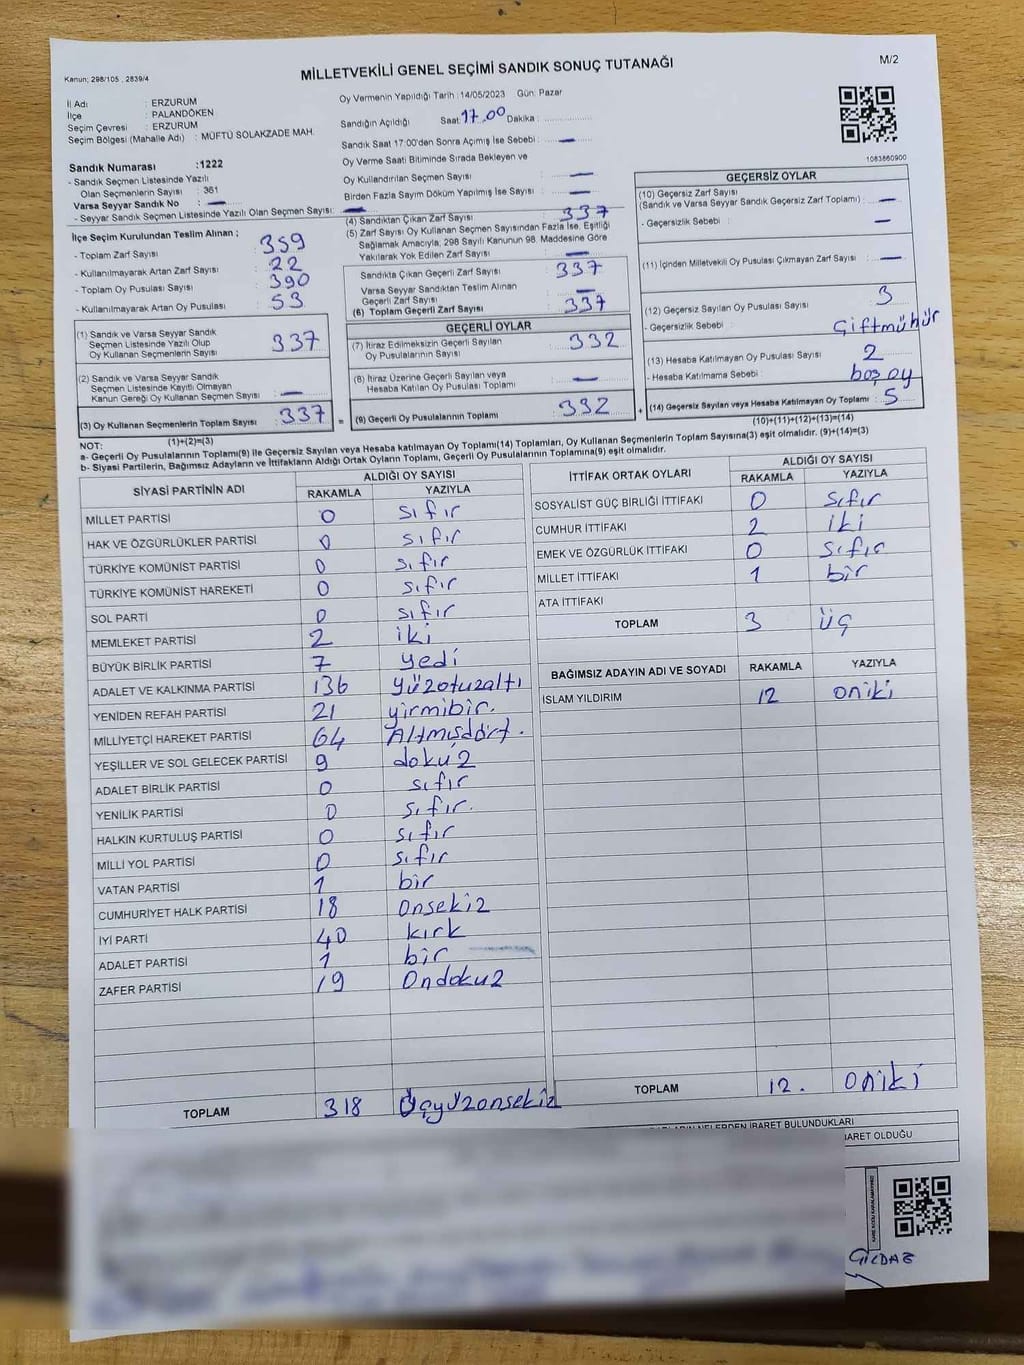 Kanun; 298/105 , 2839/4
MİLLETVEKİLİ GENEL SEÇİMİ SANDIK SONUÇ TUTANAĞI
M/2
İl Adı : ERZURUM
İlçe : PALANDÖKEN
Seçim Çevresi : ERZURUM
Seçim Bölgesi (Mahalle Adı) : MÜFTÜ SOLAKZADE MAH.
Sandık Numarası :1222
- Sandık Seçmen Listesinde Yazılı
Olan Seçmenlerin Sayısı : 361
Varsa Seyyar Sandık No : —
- Seyyar Sandık Seçmen Listesinde Yazılı Olan Seçmen Sayısı: —
Oy Vermenin Yapıldığı Tarih :14/05/2023 Gün: Pazar
Sandığın Açıldığı Saat:17.00 Dakika :
Sandık Saat 17:00'den Sonra Açımış İse Sebebi : —
Oy Verme Saati Bitiminde Sırada Bekleyen ve
Oy Kullandırılan Seçmen Sayısı : —
Birden Fazla Sayım Döküm Yapılmış İse Sayısı : —
1083860900
İlçe Seçim Kurulundan Teslim Alınan ;
- Toplam Zarf Sayısı : 359
- Kullanılmayarak Artan Zarf Sayısı : 22
- Toplam Oy Pusulası Sayısı : 390
- Kullanılmayarak Artan Oy Pusulası : 53
(1) Sandık ve Varsa Seyyar Sandık
Seçmen Listesinde Yazılı Olup
Oy Kullanan Seçmenlerin Sayısı : 337
(2) Sandık ve Varsa Seyyar Sandık
Seçmen Listesinde Kayıtlı Olmayan
Kanun Gereği Oy Kullanan Seçmen Sayısı : —
(3) Oy Kullanan Seçmenlerin Toplam Sayısı : 337
(1)+(2)=(3)
(4) Sandıktan Çıkan Zarf Sayısı : 337
(5) Zarf Sayısı Oy Kullanan Seçmen Sayısından Fazla İse, Eşitliği
Sağlamak Amacıyla, 298 Sayılı Kanunun 98. Maddesine Göre
Yakılarak Yok Edilen Zarf Sayısı : —
Sandıkta Çıkan Geçerli Zarf Sayısı : 337
Varsa Seyyar Sandıktan Teslim Alınan
Geçerli Zarf Sayısı : —
(6) Toplam Geçerli Zarf Sayısı : 337
GEÇERLİ OYLAR
(7) İtiraz Edilmeksizin Geçerli Sayılan
Oy Pusulalarının Sayısı : 332
(8) İtiraz Üzerine Geçerli Sayılan veya
Hesaba Katılan Oy Pusulası Toplamı : —
= (9) Geçerli Oy Pusulalarının Toplamı : 332
GEÇERSİZ OYLAR
(10) Geçersiz Zarf Sayısı
(Sandık ve Varsa Seyyar Sandık Geçersiz Zarf Toplamı) : —
- Geçersizlik Sebebi : —
(11) İçinden Milletvekili Oy Pusulası Çıkmayan Zarf Sayısı : —
(12) Geçersiz Sayılan Oy Pusulası Sayısı : 3
- Geçersizlik Sebebi : Çiftmühür
(13) Hesaba Katılmayan Oy Pusulası Sayısı : 2
- Hesaba Katılmama Sebebi : boş oy
+ (14) Geçersiz Sayılan veya Hesaba Katılmayan Oy Toplamı : 5
(10)+(11)+(12)+(13)=(14)
NOT:
a- Geçerli Oy Pusulalarının Toplamı(9) ile Geçersiz Sayılan veya Hesaba katılmayan Oy Toplamı(14) Toplamları, Oy Kullanan Seçmenlerin Toplam Sayısına(3) eşit olmalıdır. (9)+(14)=(3)
b- Siyasi Partilerin, Bağımsız Adayların ve İttifakların Aldığı Ortak Oyların Toplamı, Geçerli Oy Pusulalarının Toplamına(9) eşit olmalıdır.
SİYASİ PARTİNİN ADI ALDIĞI OY SAYISI
RAKAMLA YAZIYLA
MİLLET PARTİSİ 0 sıfır
HAK VE ÖZGÜRLÜKLER PARTİSİ 0 sıfır
TÜRKİYE KOMÜNİST PARTİSİ 0 sıfır
TÜRKİYE KOMÜNİST HAREKETİ 0 sıfır
SOL PARTİ 0 sıfır
MEMLEKET PARTİSİ 2 iki
BÜYÜK BİRLİK PARTİSİ 7 yedi
ADALET VE KALKINMA PARTİSİ 136 yüzotuzaltı
YENİDEN REFAH PARTİSİ 21 yirmibir.
MİLLİYETÇİ HAREKET PARTİSİ 64 Altmışdört.
YEŞİLLER VE SOL GELECEK PARTİSİ 9 dokuz
ADALET BİRLİK PARTİSİ 0 sıfır
YENİLİK PARTİSİ 0 sıfır.
HALKIN KURTULUŞ PARTİSİ 0 sıfır
MİLLİ YOL PARTİSİ 0 sıfır
VATAN PARTİSİ 1 bir
CUMHURİYET HALK PARTİSİ 18 onsekiz
İYİ PARTİ 40 kırk
ADALET PARTİSİ 1 bir
ZAFER PARTİSİ 19 Ondokuz
TOPLAM 318 Üçyüzonsekiz
İTTİFAK ORTAK OYLARI ALDIĞI OY SAYISI
RAKAMLA YAZIYLA
SOSYALİST GÜÇ BİRLİĞİ İTTİFAKI 0 sıfır
CUMHUR İTTİFAKI 2 iki
EMEK VE ÖZGÜRLÜK İTTİFAKI 0 sıfır
MİLLET İTTİFAKI 1 bir
ATA İTTİFAKI
TOPLAM 3 üç
BAĞIMSIZ ADAYIN ADI VE SOYADI RAKAMLA YAZIYLA
İSLAM YILDIRIM 12 oniki
TOPLAM 12. oniki
NELERDEN İBARET BULUNDUKLARI
İBARET OLDUĞU